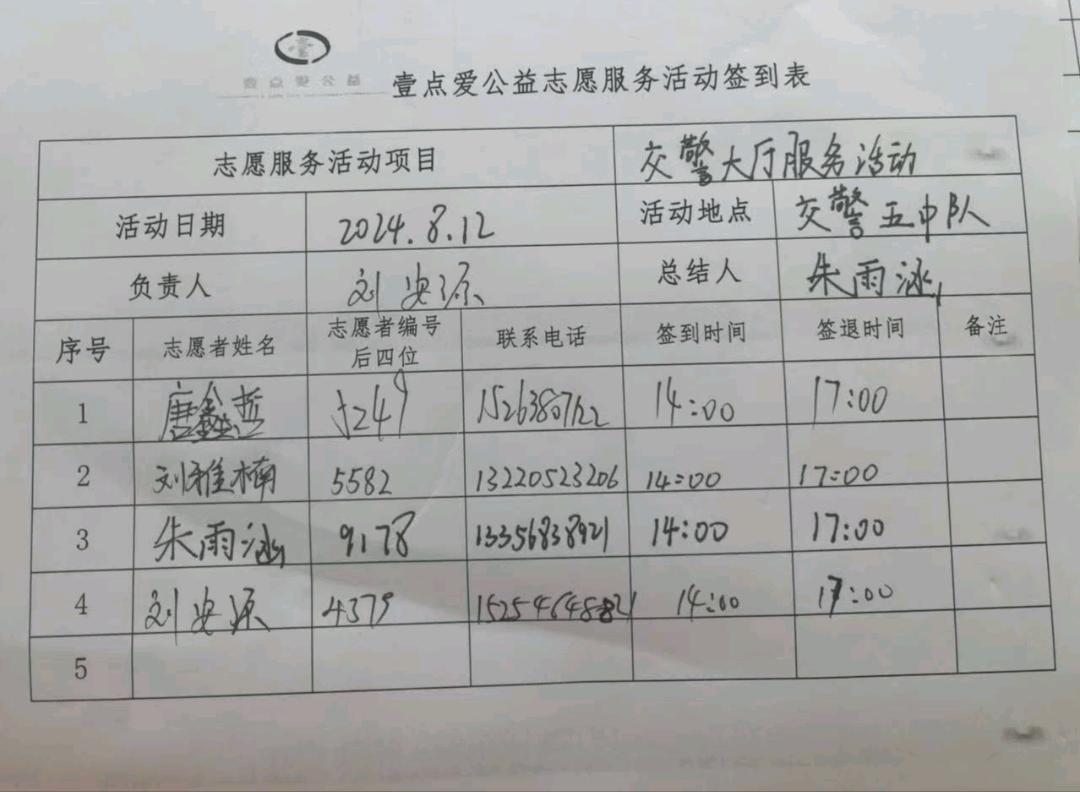 壹点爱公益
壹点爱公益志愿服务活动签到表
志愿服务活动项目 交警大厅服务活动
活动日期 2024.8.12 活动地点 交警五中队
负责人 刘安源 总结人 朱雨涵
序号 志愿者姓名 志愿者编号后四位 联系电话 签到时间 签退时间 备注
1 唐鑫哲 5249 15263807622 14:00 17:00
2 刘雅楠 5582 13220523206 14:00 17:00
3 朱雨涵 9178 13356838921 14:00 17:00
4 刘安源 4379 14:00 17:00
5